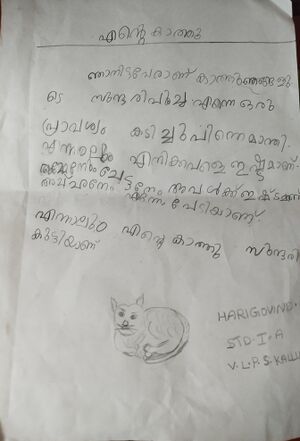 എന്റെ കാത്തു
ഞാനിട്ടപേരാണ് കാത്തു. ഞങ്ങളു
ടെ സുന്ദരിപൂച്ച എന്നെ ഒരു
പ്രാവശ്യം കടിച്ചു പിന്നെ മാന്തി.
എന്നാലും എനിക്കവളെ ഇഷ്ടമാണ്.
അച്ഛനേം ചേട്ടനേം അവൾക്ക് ഇഷ്ടമാണ്
എന്നെ പേടിയാണ്.
എന്നാലും എന്റെ കാത്തു സുന്ദരി
കുട്ടിയാണ്
HARIGOVIND.
STD-I-A
V.L.P.S.KALLU